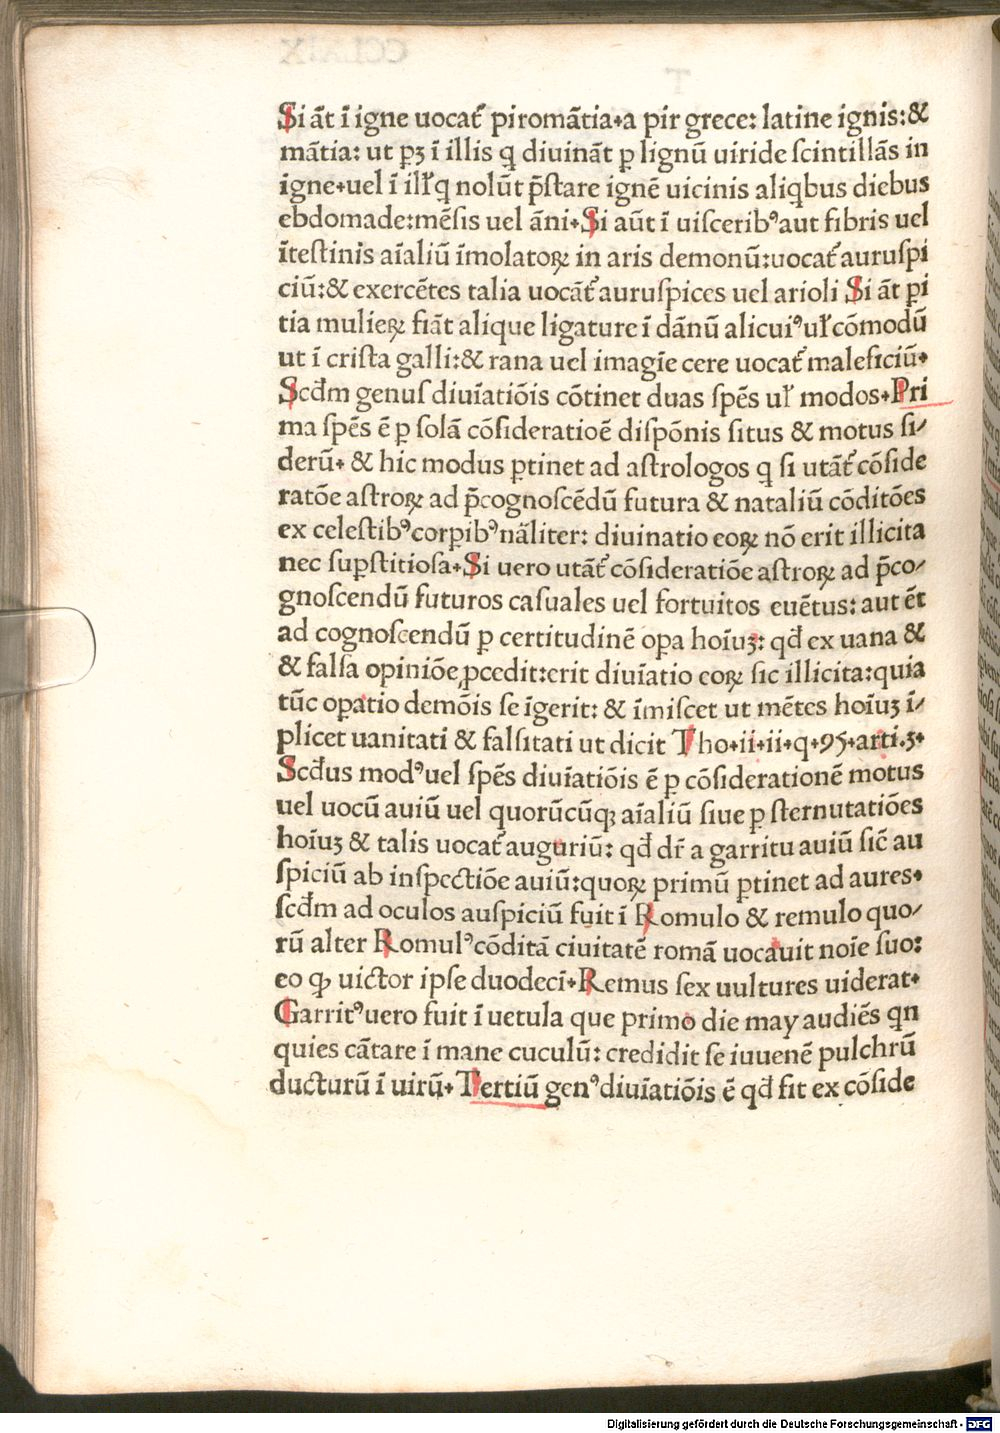 Si āt ī igne uocat᷑ piromātia.a pir grece: latine ignis:&
mātia: ut pꝫ ī illis q̄ diuināt ꝑ lignū uiride scintillās in
igne.uel ī illꝭ q̄ nolūt p̄stare ignē uicinis aliqbus diebus
ebdomade:mēsis uel āni.Si aūt ī uiscerib⁹ aut fibris uel
ītestinis aīaliū īmolatoꝝ in aris demonū:uocat᷑ auruspi
ciū:& exercētes talia uocāt᷑ auruspices uel arioli Si āt ꝑi
tia mulieꝝ fiāt alique ligature ī dānū alicui⁹ ul̕ cōmodū
ut ī crista galli:& rana uel imagīe cere uocat᷑ maleficiū.
Scd̄m genus diuīatiōis cōtinet duas spēs ul̕ modos.Pri
ma spēs ē ꝑ solā cōsideratioē dispōnis situs & motus si/
derū. & hic modus ꝑtinet ad astrologos q̄ si utāt᷑ cōside
ratōe astroꝝ ad p̄cognoscēdū futura & nataliū cōditōes
ex celestib⁹ corꝑib⁹ nāliter: diuinatio eoꝝ nō erit illicita
nec suꝑstitiosa.Si uero utāt᷑ cōsideratiōe astroꝝ ad p̄co/
gnoscendū futuros casuales uel fortuitos euētus: aut ēt
ad cognoscendū ꝑ certitudinē oꝑa hoīuꝫ: qd̄ ex uana &
& falsa opiniōe ꝓcedit:erit diuīatio eoꝝ sic illicita:quia
tūc oꝑatio demōis se īgerit: & īmiscet ut mētes hoīuꝫ ī/
plicet uanitati & falsitati ut dicit Tho.ii.ii.q.95.arti.3.
Scd̄us mod⁹ uel spēs diuīatiōis ē ꝑ cōsiderationē motus
uel uocū auiū uel quorūcūqꝫ aīaliū siue ꝑ sternutatiōes
hoīuꝫ & talis uocat᷑ auguriū: qd̄ dr̄ a garritu auiū sic̄ au
spiciū ab inspectiōe auiū:quoꝝ primū ꝑtinet ad aures.
scd̄m ad oculos auspiciū fuit ī Romulo & remulo quo/
rū alter Romul⁹ cōditā ciuitatē romā uocauit noīe suo:
eo ꝙ uictor ipse duodecī.Remus sex uultures uiderat.
Garrit⁹ uero fuit ī uetula que primo die may audiēs qn
quies cātare ī mane cuculū: credidit se iuuenē pulchrū
ducturū ī uirū. Tertiū gen⁹ diuīatiōis ē qd̄ fit ex cōside
Digitalisierung gefördert durch die Deutsche Forschungsgemeinschaft - DFG